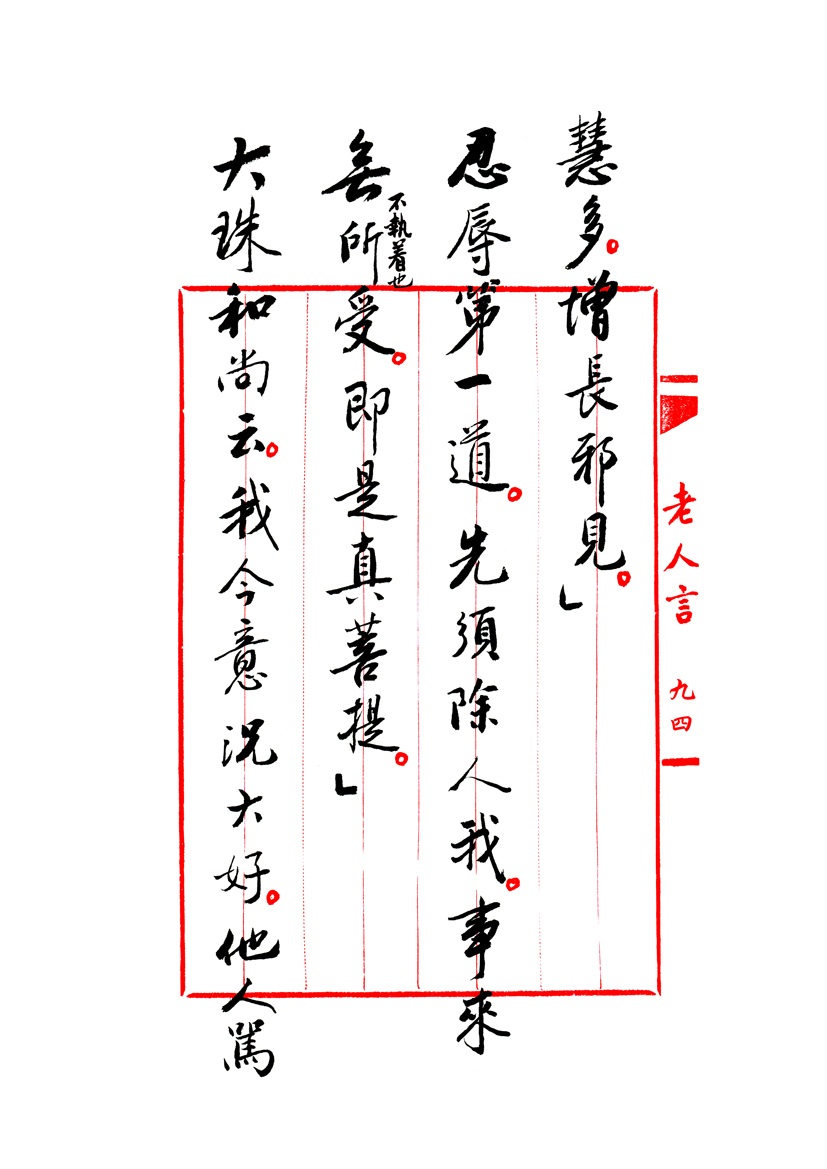 老人言 九四
慧多。增長邪見。」
忍辱第一道。先須除人我。事來
無所受。即是真菩提。」
不執着也
大珠和尚云。我今意況大好。他人罵